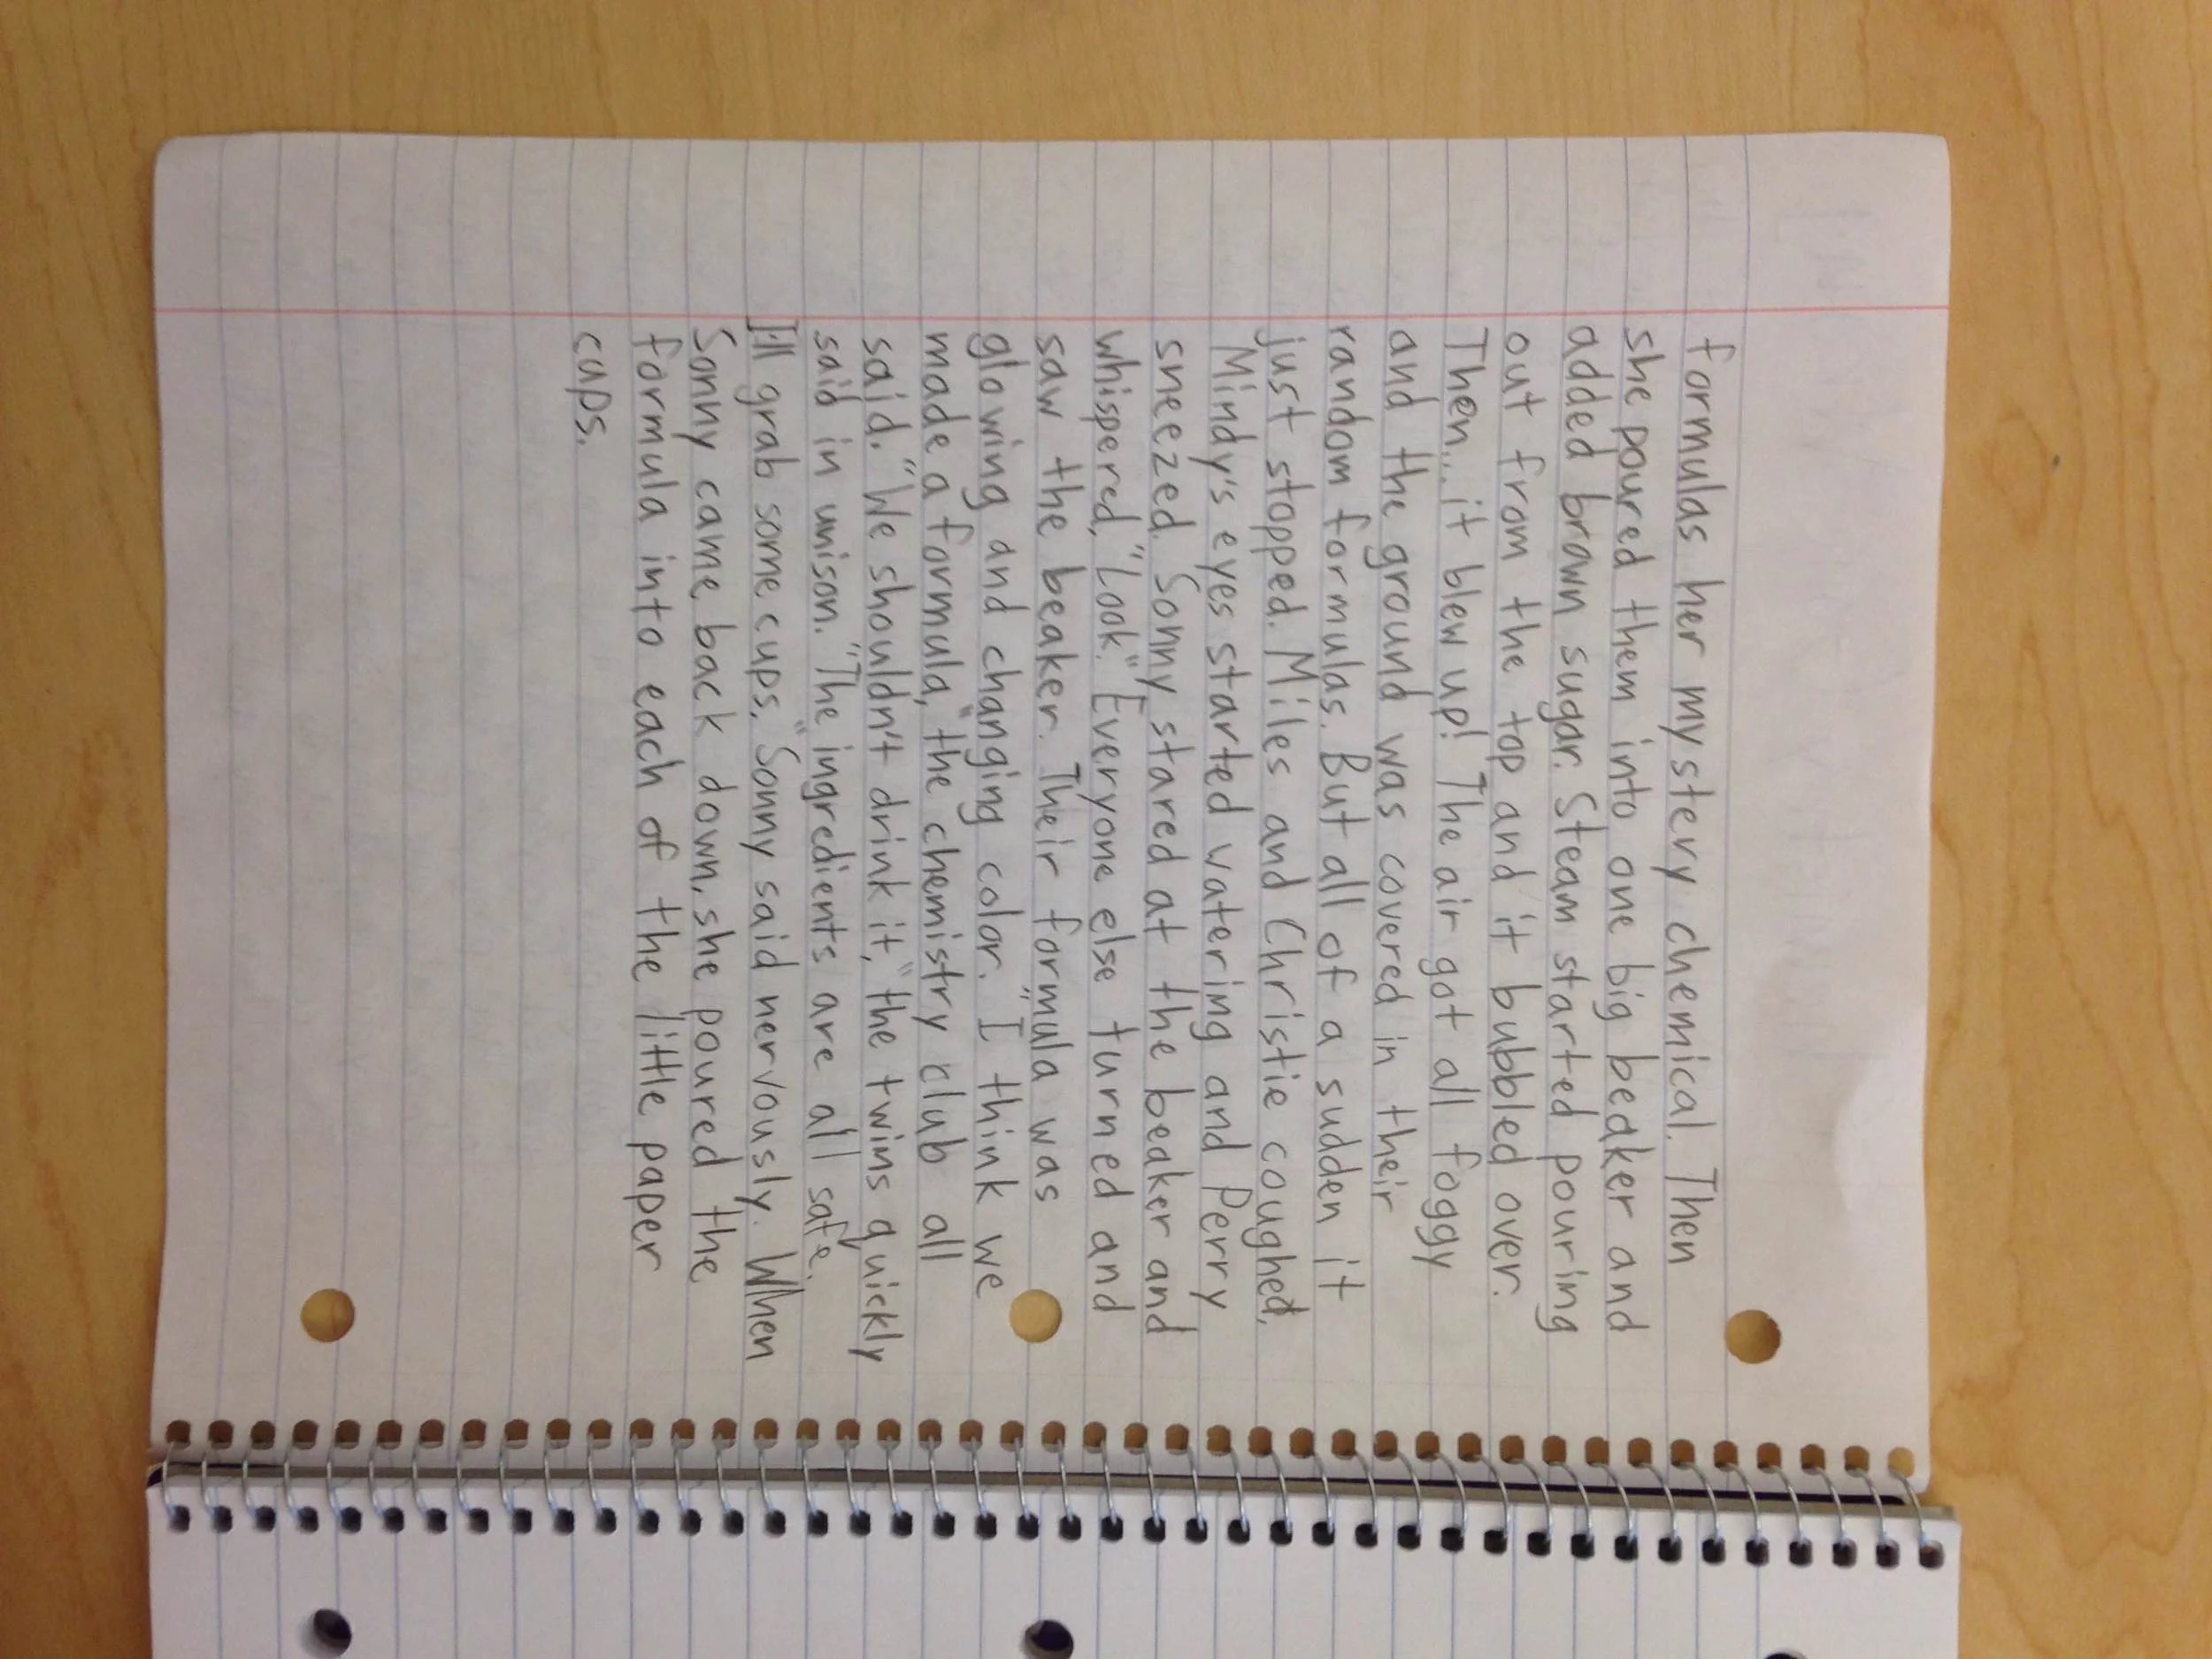 formulas her mystery chemical. Then
she poured them into one big beaker and
added brown sugar. Steam started pouring
out from the top and it bubbled over.
Then... it blew up! The air got all foggy
and the ground was covered in their
random formulas. But all of a sudden it
just stopped. Miles and Christie coughed,
Mindy's eyes started watering and Perry
sneezed. Sonny stared at the beaker and
whispered, "Look." Everyone else turned and
saw the beaker. Their formula was
glowing and changing color. "I think we
made a formula," the chemistry club all
said. "We shouldn't drink it," the twins quickly
said in unison. "The ingredients are all safe.
I'll grab some cups," Sonny said nervously. When
Sonny came back down, she poured the
formula into each of the little paper
cups.